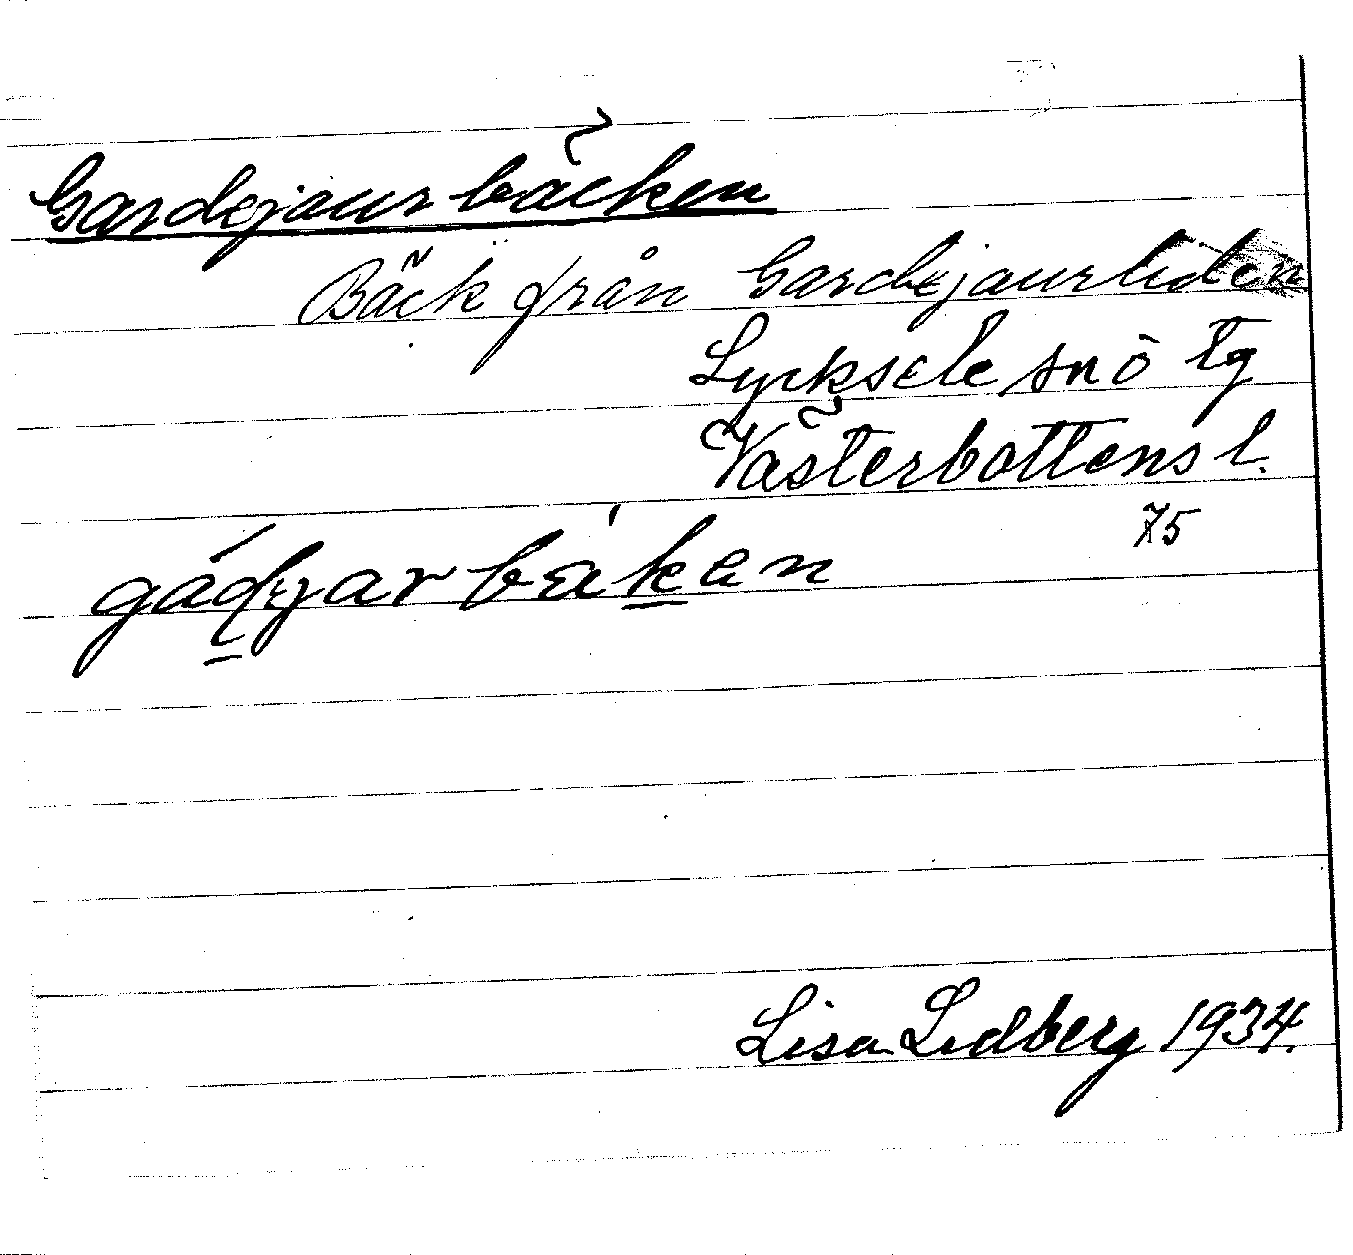 Gardejaurbäcken
Bäck från Gardejaurliden
Lycksele snö tg
Västerbottens l.
75
Lisa Lidberg 1934.